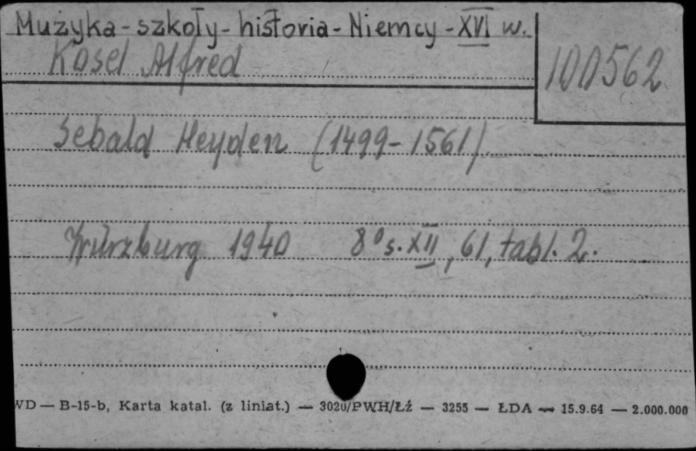 Muzyka - szkoły - historia - Niemcy - XVI w.
Kosel Alfred
100562
Sebald Heyden (1499-1561)
Würzburg 1940 8° s. XII, 61, tabl. 2.
WD — B-15-b, Karta katal. (z liniat.) — 3020/PWH/Łź — 3255 — ŁDA — 15.9.64 — 2.000.000